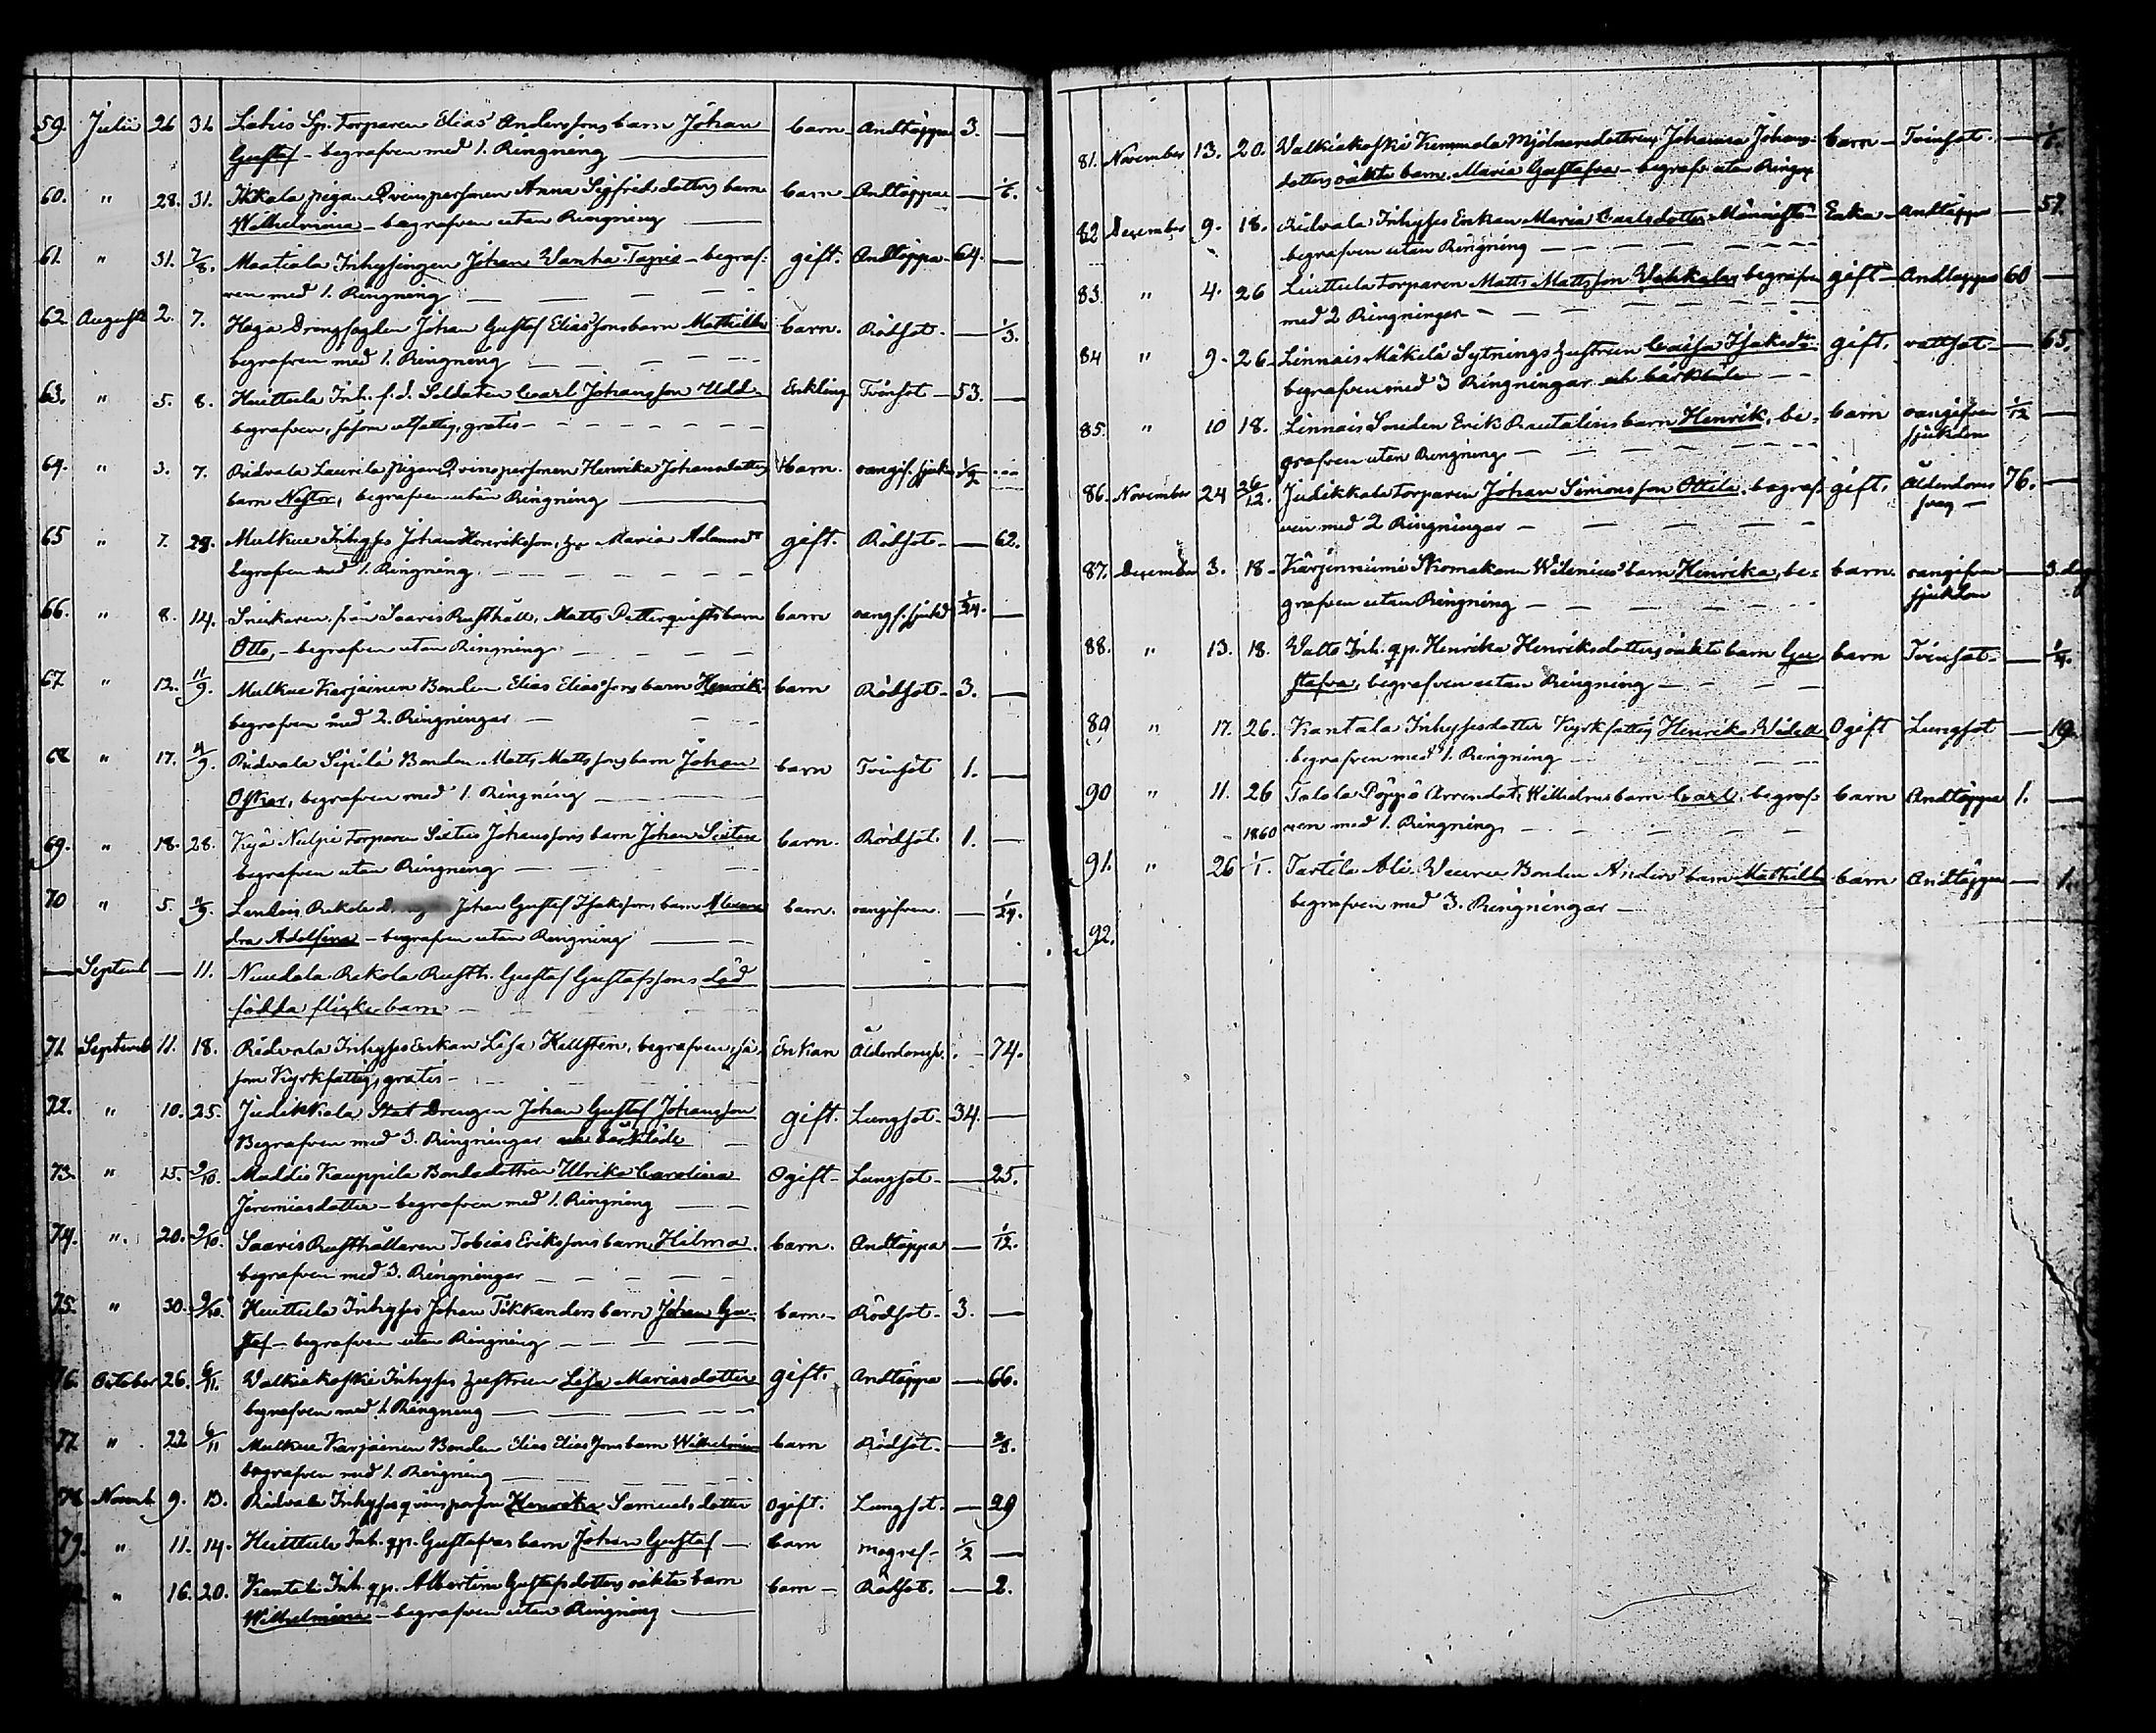 59. Julii 26 31. Lahis Sp. Torparen Elias Anderssons barn Johan barn Andtäppa 3. —
Gustaf – begrafven med 1. Ringning
60. " 28. 31. Ikkala pigan Qvinspersonen Anna Sigfridsdotters barn barn Andtäppa — 1/6.
Wilhelmina – begrafven utan Ringning
61. " 31. 7/8. Maatiala Inhysingen Johan Vanha-Tapia – begraf- gift. Andtäppa 64. —
ven med 1. Ringning
62. Augusti 2. 7. Haga Drengsagden Johan Gustaf Eliassons barn Mathilda barn. Rödsot — 1/3.
begrafven med 1. Ringning
63. " 5. 8. Huittula Inh. f.d. Soldaten Carl Johansson Udd Enkling Tvinsot 53. —
begrafven, såsom utfattig, gratis
64. " 3. 7. Ridvala Laurila pigan Qvinspersonen Henrika Johansdotters barn. oangif. sjukd. 1/2
barn Nestor, begrafven utan Ringning
65 " 7. 28. Mulkue Inhyses Johan Henriksson, h. Maria Adamsdr gift. Rödsot — 62.
begrafven med 1. Ringning
66. " 8. 14. Snickaren från Saaris Rusthåll, Matts Petterqvists barn barn oangf. sjukd 1/24. —
Otto, – begrafven utan Ringning
67 " 12. 11/9. Mulkue Karjainen Bonden Elias Eliassons barn Henrik barn Rödsot 3. —
begrafven med 2. Ringningar
68 " 17. 4/9. Ridvala Sipilä Bonden Matts Mattssons barn Johan barn Tvinsot 1. —
Oskar, begrafven med 1. Ringning
69. " 18. 28. Torparen Sixtus Johanssons barn Johan Sixtus barn. Rödsot. 1. —
begrafven utan Ringning
70 " 5. 4/9. Johan Gustaf Isakssons barn Alexan- barn. oangifven. — 1/24.
dra Adolfina – begrafven utan Ringning
— Septemb — 11. Nuudala Rekola Rusth. Gustaf Gustafssons död-
födda flicke barn
71. Septemb 11. 18. Ridvala Inhyses Enkan Lisa Hellsten, begrafven, så- Enkan Ålderdomsh. — 74.
som Kyrkfattig, gratis
72. " 10. 25. Judikkala Stat Drengen Johan Gustaf Johansson gift. Lungsot 34. —
Begrafven med 3. Ringningar och bårkläde
73. " 15. 9/10. Maddis Kauppila Bondedottren Ulrika Carolina Ogift Lungsot — 25.
Jeremiasdotter – begrafven med 1. Ringning
74. " 20. 9/10. Saaris Rusthållaren Tobias Erikssons barn Hilma. barn. Andtäppa — 1/12.
begrafven med 3. Ringningar
75. " 30. 9/10. Huittula Inhyses Johan Tikkanders barn Johan Gu- barn Rödsot 3. —
staf – begrafven utan Ringning
76. October 26. 6/11. Walkiakoski Inhyses hustrun Lisa Mariasdotter gift. Andtäppa — 66.
begrafven med 1. Ringning
77. " 22 6/11 Mulkue Karjainen Bonden Elias Eliassons barn Wilhelmina barn Rödsot —
begrafven med 1. Ringning
78 Novemb. 9. 13. Ridvala Inhyses qvinsperson Henrika Samuelsdotter Ogift. Lungsot — 29
79. " 11. 14. Huittula Inh. qp. Gustafvas barn Johan Gustaf barn magref 1/2 —
" 16. 20. Inh. qp. Albertina Gustafsdotters oäkta barn barn Rödsot. — 2.
Wilhelmina – begrafven utan Ringning
81. November 13. 20. Walkiakoski Kemmola Mjölnaredottren Johanna Johans- barn Tvinsot. — 1/6.
dotters oäkta barn, Maria Gustafva – begraf. utan Ringng
82 December 9. 18. Ridvala Inhyses Enkan Maria Carlsdotter Männistö Enka Andtäppa — 57.
begrafven utan Ringning
83. " 4. 26 Liuttula Torparen Matts Mattsson Wekkala, begrafven gift Andtäppa 60 —
med 2 Ringningar
84 " 9. 26 Linnais Mäkelä Sytnings hustrun Caisa Isaksdr gift. vattsot — 65.
begrafven med 3 Ringningar och bårkläde
85. " 10 18. Linnais Smeden Erik Rautalins barn Henrik, be- barn oangifven 1/12 —
grafven utan Ringning sjukdom
86. November 24 26/12. Judikkala Torparen Johan Simonsson Ottila, begraf- gift. Ålderdoms 76. —
ven med 2 Ringningar svag
87. December 3. 18 Kärjenniemi Skomakaren Wilenius' barn Henrika, be- barn. oangifven — 3 dg
grafven utan Ringning sjukdom
88. " 13. 18. Walto Inh. qp. Henrika Henriksdotters oäkta barn Gu- barn Tvinsot — 1/4.
stafva, begrafven utan Ringning
89 " 17. 26. Kantala Inhysesdotter Kyrkfattig Henrika Widell Ogift Lungsot — 19.
begrafven med 1. Ringning
90 " 11. 26 Talola Pöppö Arrendat. Wilhelms barn Carl, begraf- barn Andtäppa 1. —
1860 ven med 1. Ringning
91. " 26 1/1. Tarttila Ali-Wuura Bonden Anders' barn Mathilda barn Andtäppa — 1.
begrafven med 3. Ringningar
92.